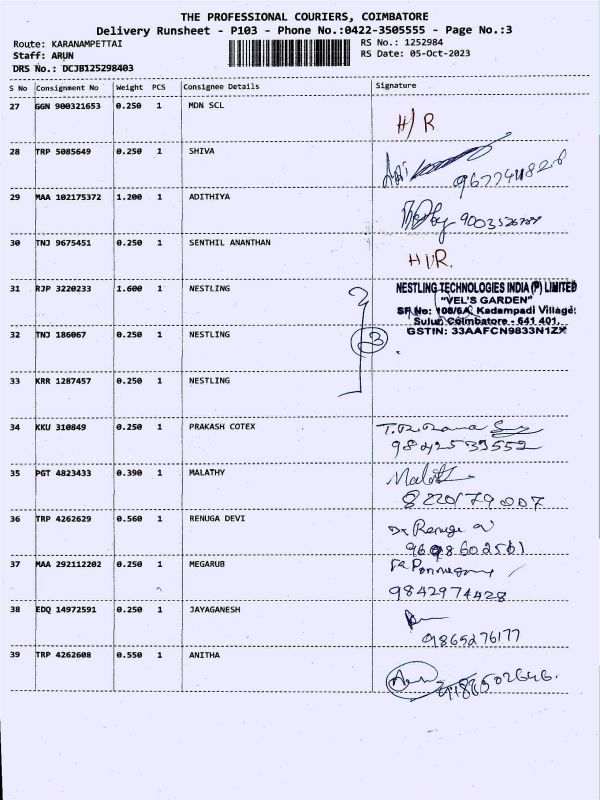 THE PROFESSIONAL COURIERS, COIMBATORE
Delivery Runsheet - P103 - Phone No.:0422-3505555 - Page No.:3
Route: KARANAMPETTAI RS No.: 1252984
Staff: ARUN RS Date: 05-Oct-2023
DRS No.: DCJB125298403
S No Consignment No Weight PCS Consignee Details Signature
27 GGN 900321653 0.250 1 MDN SCL H/R
28 TRP 5085649 0.250 1 SHIVA
29 MAA 102175372 1.200 1 ADITHIYA
30 TNJ 9675451 0.250 1 SENTHIL ANANTHAN
31 RJP 3220233 1.600 1 NESTLING
NESTLING TECHNOLOGIES INDIA (P) LIMITED
"VEL'S GARDEN"
SF.No: 108/6A, Kadampadi Village
Sulur, Coimbatore - 641 401.
GSTIN: 33AAFCN9833N1ZX
32 TNJ 186067 0.250 1 NESTLING 3
33 KRR 1287457 0.250 1 NESTLING
34 KKU 310849 0.250 1 PRAKASH COTEX
9842539552
35 PGT 4823433 0.390 1 MALATHY
8220179007
36 TRP 4262629 0.560 1 RENUGA DEVI
37 MAA 292112202 0.250 1 MEGARUB
9842974428
38 EDQ 14972591 0.250 1 JAYAGANESH
9865276177
39 TRP 4262608 0.550 1 ANITHA